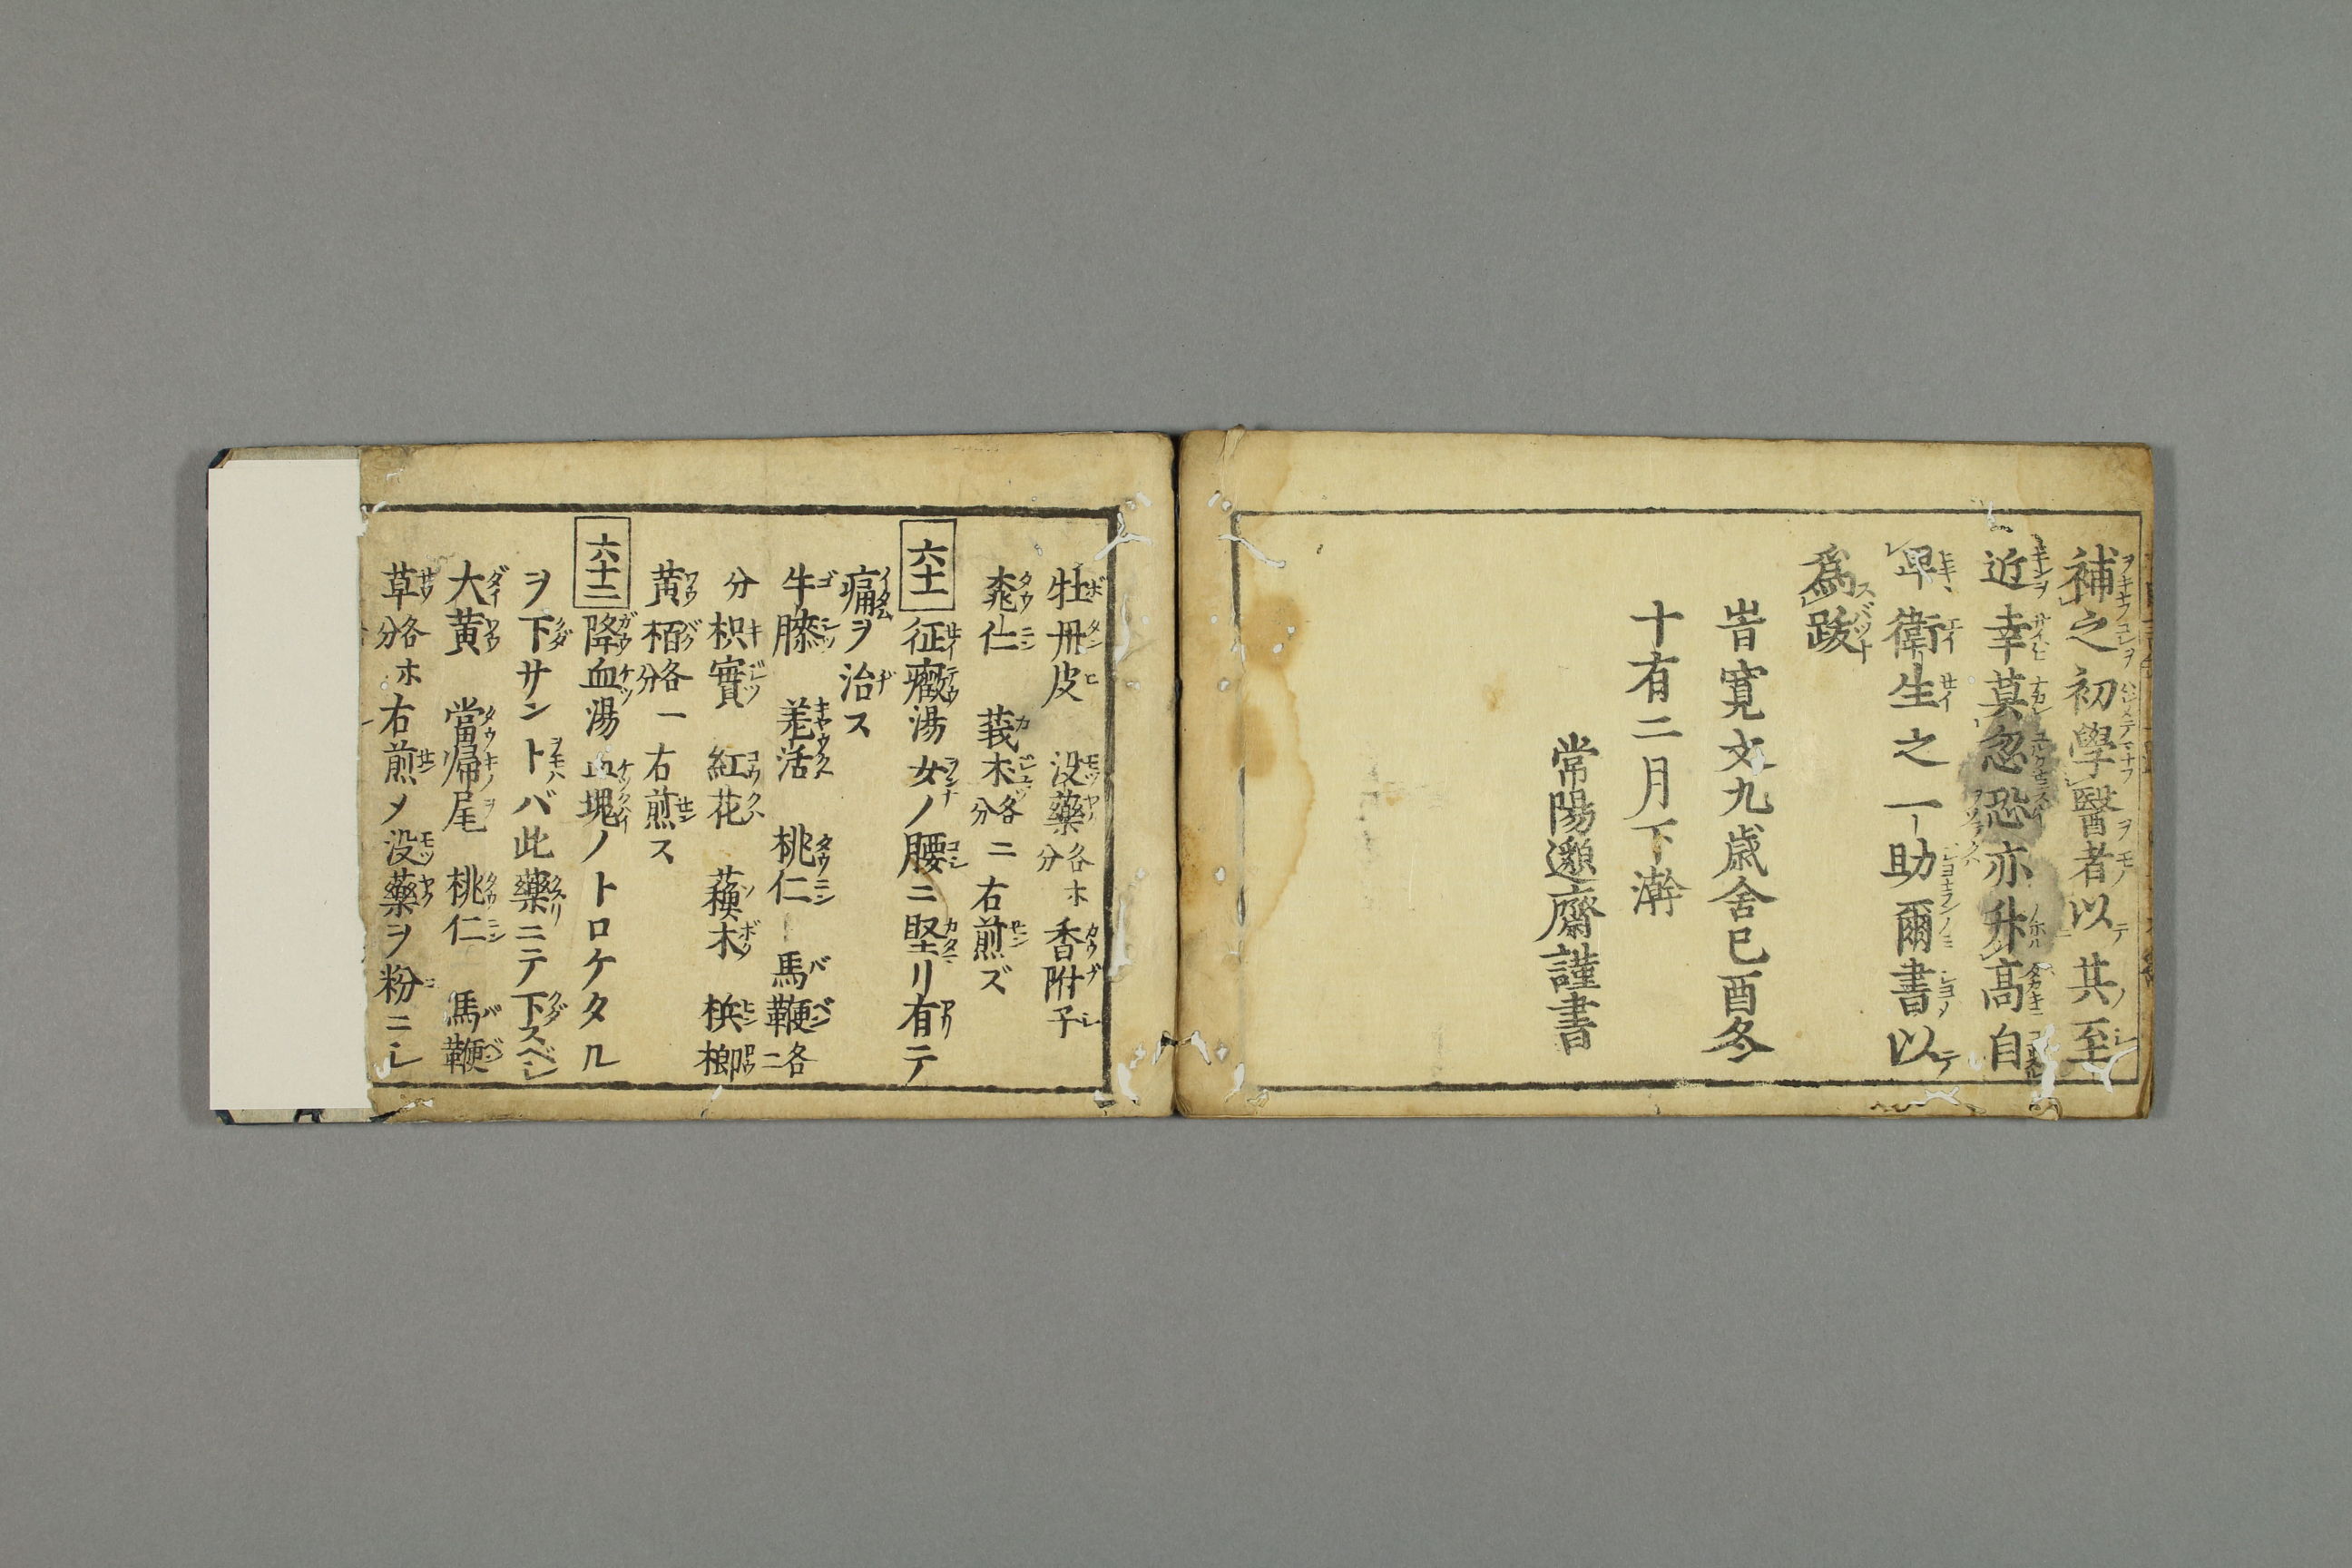 補之初學醫者以其至
近幸莫忽恐亦升髙自
卑衛生之一助爾書以
爲跋
旹寛文九歳舍己酉冬
十有二月下澣
常陽邋齋謹書
牡丹皮 没藥各分ホ 香附子
桃仁 莪朮各分ニ 右煎ズ
六十一 征癥湯 女ノ腰ニ堅リ有テ
痛ヲ治ス
牛膝 羗活 桃仁 馬鞭各ニ
分 枳實 紅花 蘓木 梹榔
黄栢各分一 右煎ス
六十二 降血湯 血塊ノトロケタル
ヲ下サントバ此藥ニテ下スベシ
大黄 當帰尾 桃仁 馬鞭
草各分ホ 右煎メ没藥ヲ粉ニシ